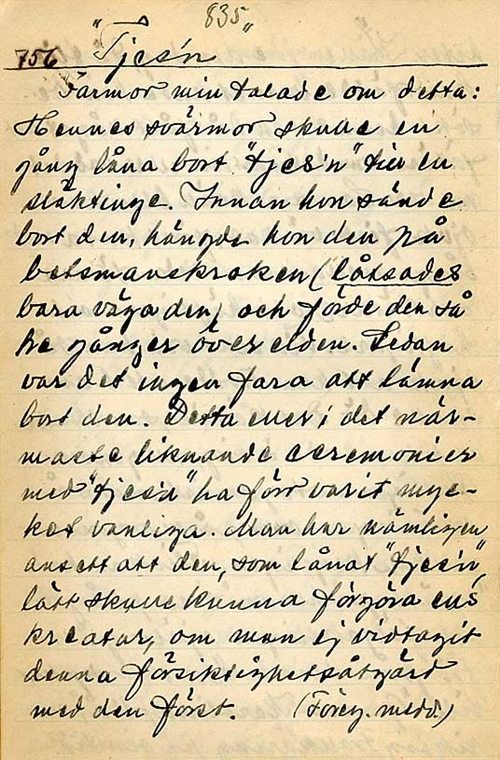 835
756 "Tjes'n"
Farmor min talade om detta:
Hennes svärmor skulle en
gång låna bort "tjes'n" till en
släktinge. Innan hon sände
bort den, hängde hon den på
betsmanskroken (låtsades
bara väga den) och förde den så
tre gånger över elden. Sedan
var det ingen fara att lämna
bort den. Detta eller i det när-
maste liknande ceremonier
med "tjes'n" ha förr varit myc-
ket vanliga. Man har nämligen
ansett att den, som lånat "tjes'n",
lätt skulle kunna förgöra ens
kreatur, om man ej vidtagit
denna försiktighetsåtgärd
med den först. (Föreg. medd.)